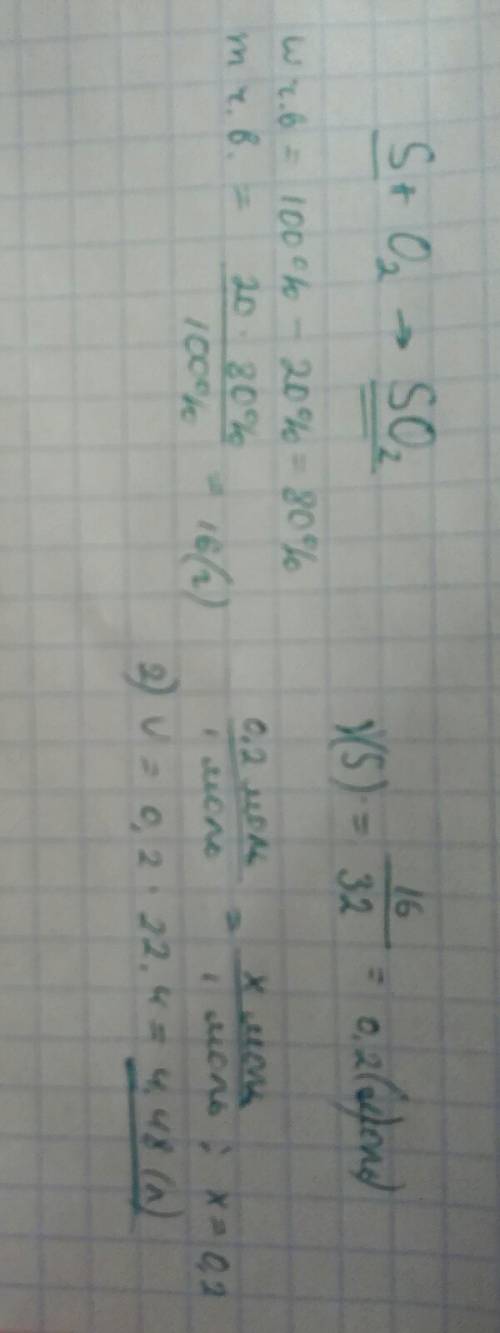 S + O₂ → SO₂
w ч.в = 100% - 20% = 80%
m ч.в. = 20 · 80% / 100% = 16(г)
1) ν(S) = 16 / 32 = 0,2(моль)
0,2 моль / 1 моль = x моль / 1 моль ; x = 0,2
2) V = 0,2 · 22,4 = 4,48 (л)